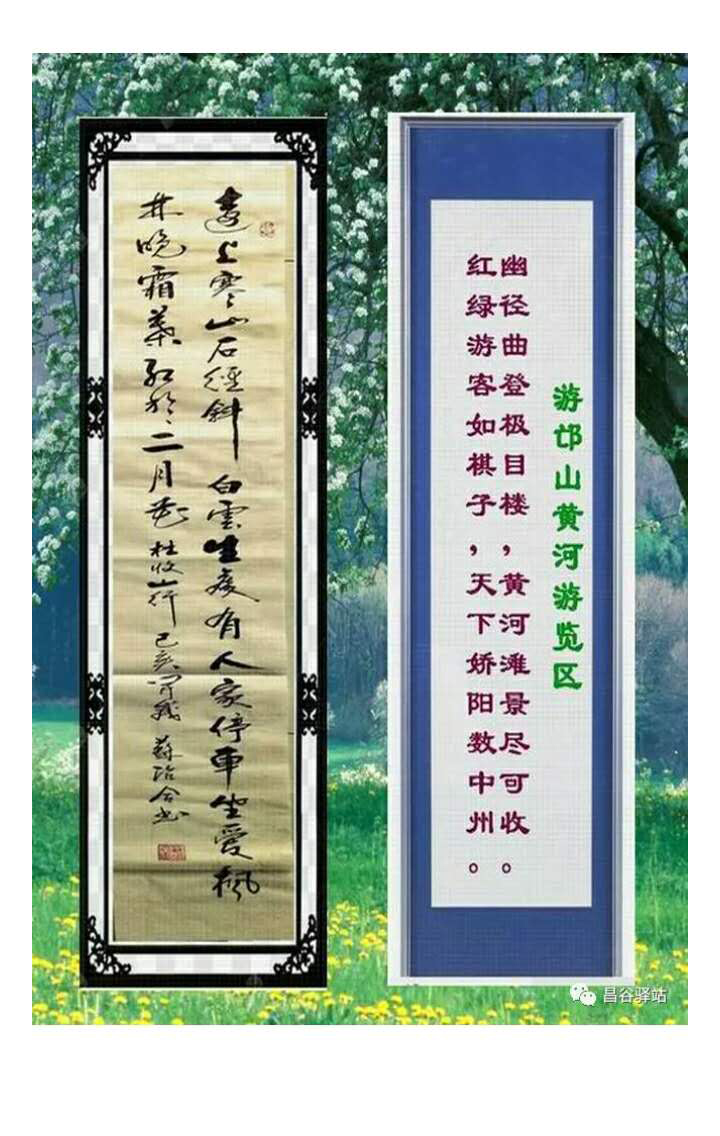 游邙山黄河游览区
幽径曲登极目楼，黄河滩景尽可收。
红绿游客如棋子，天下娇阳数中州。
遠上寒山石徑斜白雲生處有人家停車坐愛楓
林晚霜葉紅於二月花 杜牧山行 己亥
昌谷驿站